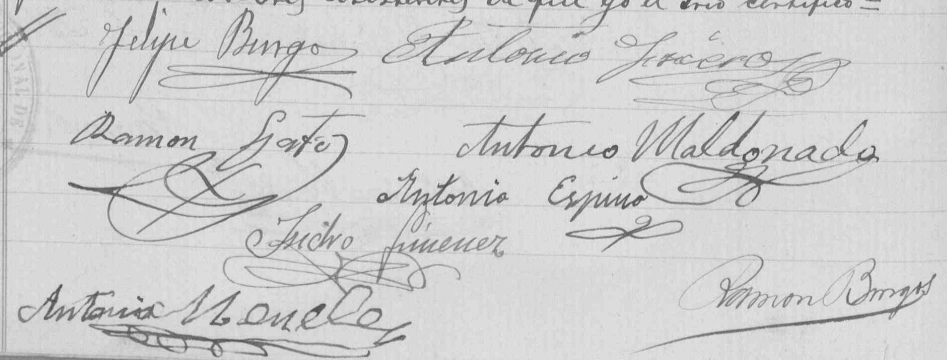 de que yo el Srio certifico=
Felipe Burgo Antonio
Ramon Gato Antonio Maldonado
Antonio Espino
Isidro Jimenez
Antonio Ramon Burgos